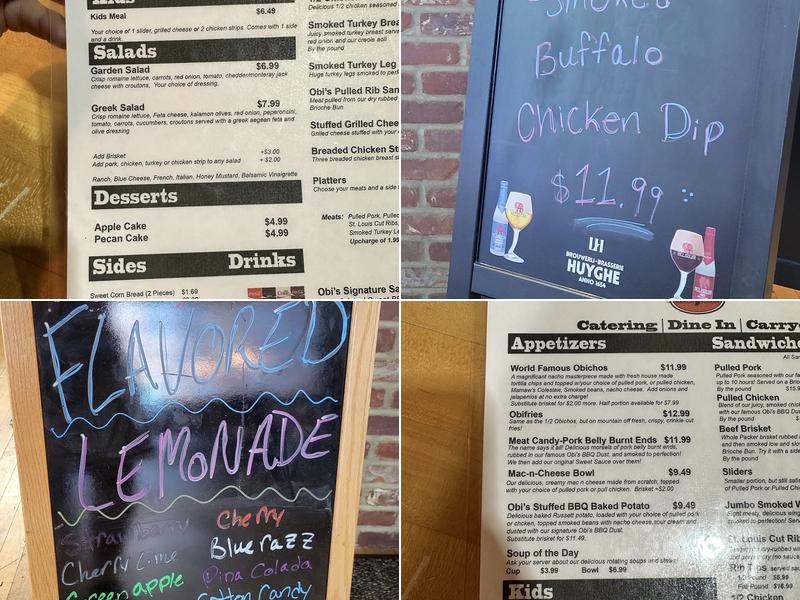 Kids
Kids Meal $6.49
Your choice of 1 slider, grilled cheese or 2 chicken strips. Comes with 1 side
and a drink.
Salads
Garden Salad $6.99
Crisp romaine lettuce, carrots, red onion, tomato, cheddermonterey jack
cheese with croutons, Your choice of dressing.
Greek Salad $7.99
Crisp romaine lettuce, Feta cheese, kalamon olives, red onion, peperoncini,
tomato, carrots, cucumbers, croutons served with a greek aegean feta and
olive dressing
Add Brisket +$3.00
Add pork, chicken, turkey or chicken strip to any salad + $2.00
Ranch, Blue Cheese, French, Italian, Honey Mustard, Balsamic Vinaigrette
Desserts
Apple Cake $4.99
Pecan Cake $4.99
Sides Drinks
Sweet Corn Bread (2 Pieces) $1.69
Delicious 1/2 chicken seasoned
Smoked Turkey Brea
Juicy smoked turkey breast serve
red onion and our creole aoli
By the pound
Smoked Turkey Leg
Huge turkey legs smoked to perf
Obi's Pulled Rib San
Meat pulled from our dry rubbed
Brioche Bun
Stuffed Grilled Chee
Grilled cheese stuffed with your
Breaded Chicken St
Three breaded chicken breast s
Platters
Choose your meats and a side
Meats: Pulled Pork, Pulled
St. Louis Cut Ribs,
Smoked Turkey L
Upcharge of 1.99
Obi's Signature Sa
Smoked
Buffalo
Chicken Dip
$11.99
LH
BROUWERIJ-BRASSERIE
HUYGHE
ANNO 1654
FLAVORED
LEMONADE
Strawberry Cherry
Cherry Lime Blue razz
Green apple Pina Colada
Cotton Candy
Catering | Dine In | Carry
Appetizers
World Famous Obichos $11.99
A magnificant nacho masterpiece made with fresh house made
tortilla chips and topped w/your choice of pulled pork, or pulled chicken,
Mamaw's Coleslaw, Smoked beans, nacho cheese. Add onions and
jalapenios at no extra charge!
Substitute brisket for $2.00 more. Half portion available for $7.99
Obifries $12.99
Same as the 1/2 Obichos, but on mountain off fresh, crispy, crinkle-cut
fries!
Meat Candy-Pork Belly Burnt Ends $11.99
The name says it all! Delicious morsels of pork belly burnt ends,
rubbed in our famous Obi's BBQ Dust, and smoked to perfection!
We then add our original Sweet Sauce over them!
Mac-n-Cheese Bowl $9.49
Our delicious, creamy mac n cheese made from scratch, topped
with your choice of pulled pork or pull chicken. Brisket +$2.00
Obi's Stuffed BBQ Baked Potato $9.49
Delicious baked Russett potato, loaded with your choice of pulled pork
or chicken, topped smoked beans with nacho cheese,sour cream and
dusted with our signature Obi's BBQ Dust.
Substitute brisket for $11.49.
Soup of the Day
Ask your server about our delicious rotating soups and stews
Cup $3.99 Bowl $6.99
Kids
Sandwiche
Pulled Pork
Pulled Pork seasoned with our fa
up to 10 hours! Served on a Brio
By the pound
Pulled Chicken
Blend of our juicy, smoked chick
with our famous Obi's BBQ Dust
By the pound
Beef Brisket
Whole Packer brisket rubbed i
and then smoked low and slow
Brioche Bun. Try it with a side
By the pound
Sliders
Smaller portion, but still satis
of Pulled Pork or Pulled Chick
Jumbo Smoked W
St. Louis Cut Rib
Rib Tips
1/2 Pound
Full Pound
1/2 Chicken